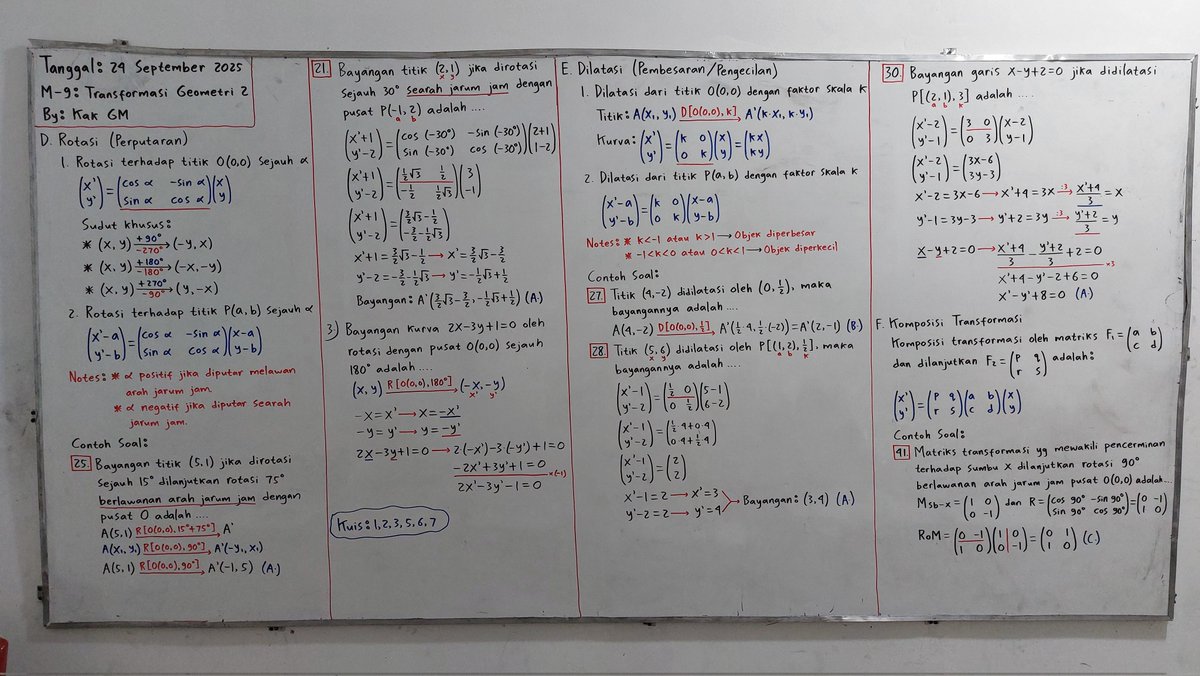 Tanggal: 29 September 2025
M-9: Transformasi Geometri 2
By: Kak GM
D. Rotasi (Perputaran)
1. Rotasi terhadap titik O(0,0) sejauh α
(x' y') = (cos α -sin α sin α cos α)(x y)
Sudut khusus:
* (x, y) +90° -270° → (-y, x)
* (x, y) +180° -180° → (-x, -y)
* (x, y) +270° -90° → (y, -x)
2. Rotasi terhadap titik P(a,b) sejauh α
(x'-a y'-b) = (cos α -sin α sin α cos α)(x-a y-b)
Notes: * α positif jika diputar melawan
arah jarum jam.
* α negatif jika diputar searah
jarum jam.
Contoh Soal:
25. Bayangan titik (5,1) jika dirotasi
sejauh 15° dilanjutkan rotasi 75°
berlawanan arah jarum jam dengan
pusat O adalah ....
A(5,1) R[O(0,0), 15°+75°] → A'
A(x₁, y₁) R[O(0,0), 90°] → A'(-y₁, x₁)
A(5,1) R[O(0,0), 90°] → A'(-1, 5) (A.)
21. Bayangan titik (2,1) jika dirotasi
x y
sejauh 30° searah jarum jam dengan
pusat P(-1, 2) adalah ....
a b
(x'+1 y'-2) = (cos (-30°) -sin (-30°) sin (-30°) cos (-30°))(2+1 1-2)
(x'+1 y'-2) = (½√3 ½ -½ ½√3)(3 -1)
(x'+1 y'-2) = (3/2√3-½ -3/2-½√3)
x'+1 = 3/2√3-½ → x' = 3/2√3-3/2
y'-2 = -3/2-½√3 → y' = -½√3+½
Bayangan: A'(3/2√3-3/2, -½√3+½) (A.)
3) Bayangan kurva 2x-3y+1=0 oleh
rotasi dengan pusat O(0,0) sejauh
180° adalah ....
(x, y) R[O(0,0), 180°] → (-x, -y)
x' y'
-x = x' → x = -x'
-y = y' → y = -y'
2x-3y+1=0 → 2(-x')-3(-y')+1=0
-2x'+3y'+1=0 ×(-1)
2x'-3y'-1=0
Kuis: 1, 2, 3, 5, 6, 7
E. Dilatasi (Pembesaran/Pengecilan)
1. Dilatasi dari titik O(0,0) dengan faktor skala k
Titik: A(x₁, y₁) D[O(0,0), k] → A'(k.x₁, k.y₁)
Kurva: (x' y') = (k 0 0 k)(x y) = (kx ky)
2. Dilatasi dari titik P(a,b) dengan faktor skala k
(x'-a y'-b) = (k 0 0 k)(x-a y-b)
Notes: * k<-1 atau k>1 → Objek diperbesar
* -1<k<0 atau 0<k<1 → Objek diperkecil
Contoh Soal:
27. Titik (4,-2) didilatasi oleh (0, ½), maka
bayangannya adalah ....
A(4,-2) D[O(0,0), ½] → A'(½.4, ½.(-2)) = A'(2,-1) (B.)
28. Titik (5,6) didilatasi oleh P[(1,2), ½], maka
x y a b k
bayangannya adalah ....
(x'-1 y'-2) = (½ 0 0 ½)(5-1 6-2)
(x'-1 y'-2) = (½.4+0.4 0.4+½.4)
(x'-1 y'-2) = (2 2)
x'-1=2 → x'=3
y'-2=2 → y'=4
Bayangan: (3,4) (A.)
30. Bayangan garis x-y+2=0 jika didilatasi
P[(2,1), 3] adalah ....
a b k
(x'-2 y'-1) = (3 0 0 3)(x-2 y-1)
(x'-2 y'-1) = (3x-6 3y-3)
x'-2=3x-6 → x'+4=3x :3 → x'+4/3 = x
y'-1=3y-3 → y'+2=3y :3 → y'+2/3 = y
x-y+2=0 → x'+4/3 - y'+2/3 + 2 = 0 ×3
x'+4-y'-2+6=0
x'-y'+8=0 (A.)
F. Komposisi Transformasi
Komposisi transformasi oleh matriks F₁ = (a b c d)
dan dilanjutkan F₂ = (p q r s) adalah:
(x' y') = (p q r s)(a b c d)(x y)
Contoh Soal:
41. Matriks transformasi yg mewakili pencerminan
terhadap sumbu X dilanjutkan rotasi 90°
berlawanan arah jarum jam pusat O(0,0) adalah...
Msb-x = (1 0 0 -1) dan R = (cos 90° -sin 90° sin 90° cos 90°) = (0 -1 1 0)
RoM = (0 -1 1 0)(1 0 0 -1) = (0 1 1 0) (C.)